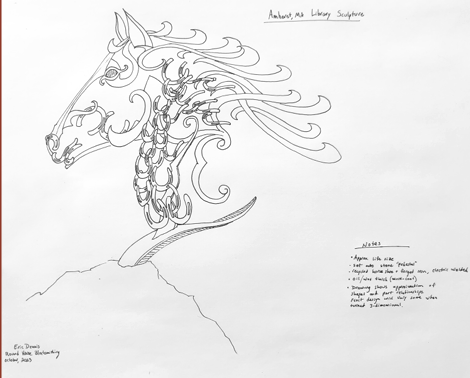 Amhurst, MA Library Sculpture
Notes
• Approx life size
• set onto stone "pedestal"
• recycled horse shoes + forged iron, electric welded
• oil/wax finish
• Drawing shows approximation of
shapes and part relationships
Exact design will vary some when
turned 3-dimensional.
Eric Dennis
Round Blacksmithing
October,